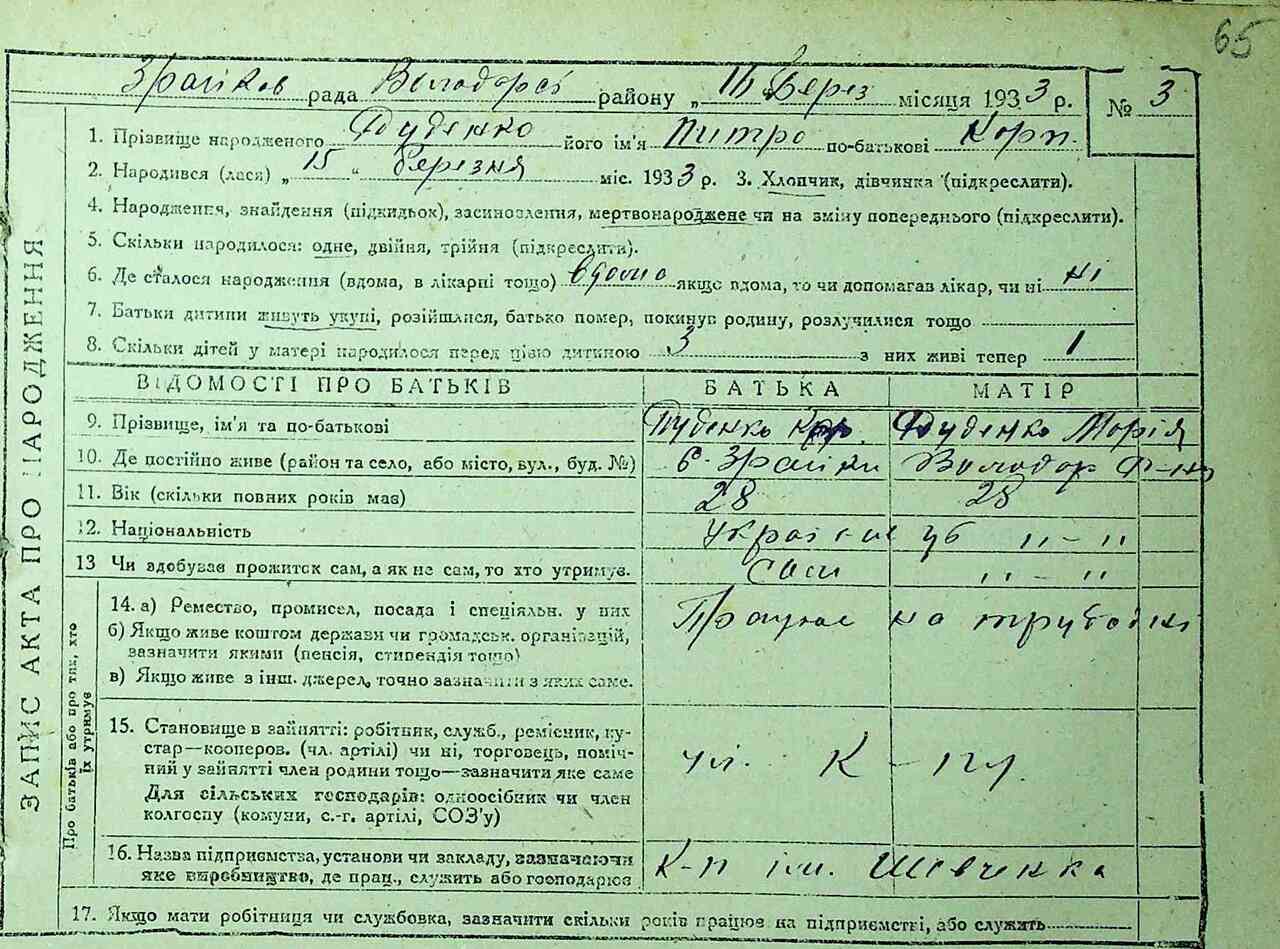 65
Зрайков рада Володарсь району „ 16 Берез місяця 1933 р. № 3
1. Прізвище народженого Дуденко його ім'я Питро по-батькові Корп.
2. Народився (лася) „ 15 “ березня міс. 1933 р. 3. Хлопчик, дівчинка (підкреслити).
4. Народження, знайдення (підкидьок), засиновлення, мертвонароджене чи на зміну попереднього (підкреслити).
5. Скільки народилося: одне, двійня, трійня (підкреслити).
6. Де сталося народження (вдома, в лікарні тощо) вдома якщо вдома, то чи допомагав лікар, чи ні ні
7. Батьки дитини живуть укупі, розійшлися, батько помер, покинув родину, розлучилися тощо
8. Скільки дітей у матері народилося перед цією дитиною 3 з них живі тепер 1
ВІДОМОСТІ ПРО БАТЬКІВ БАТЬКА МАТІР
9. Прізвище, ім'я та по-батькові Дуденко Дуденко Марія
10. Де постійно живе (район та село, або місто, вул., буд. №) с. Зрайки Володар Р-ну
11. Вік (скільки повних років має) 28 28
12. Національність Українці " – "
13 Чи здобував прожиток сам, а як не сам, то хто утримув. Сам " – "
14. а) Ремество, промисел, посада і спеціяльн. у них Працює на
б) Якщо живе коштом держави чи громадськ. організацій,
зазначити якими (пенсія, стипендія тощо)
в) Якщо живе з інш. джерел, точно зазначити з яких саме.
15. Становище в зайнятті: робітник, служб., ремісник, ку-
стар—кооперов. (чл. артілі) чи ні, торговець, поміч-
ний у зайнятті член родини тощо—зазначити яке саме чл. К – пу.
Для сільських господарів: одноосібник чи член
колгоспу (комуни, с.-г. артілі, СОЗ'у)
16. Назва підприємства, установи чи закладу, зазначаючи
яке виробництво, де прац., служить або господарює К-п ім. Шевченка
17. Якщо мати робітниця чи службовка, зазначити скільки років працює на підприємстві, або служить
ЗАПИС АКТА ПРО НАРОДЖЕННЯ
Про батьків або про тих, хто
їх утримує